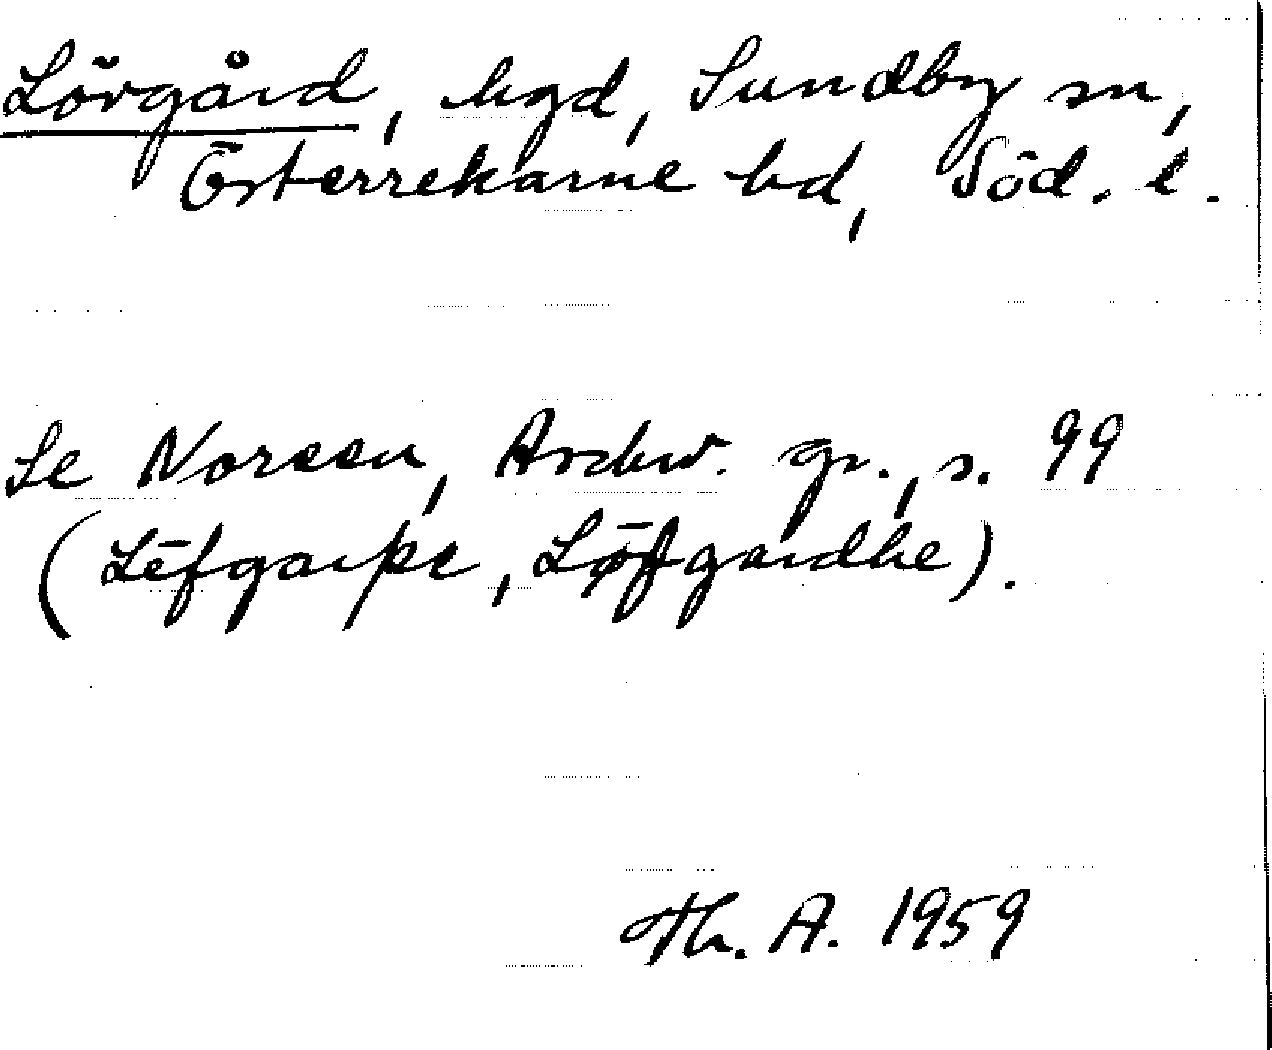 Lövgård, hgd, Sundby sn,
Österrekarne hd, Söd. l.
Se Noreen, Ardw. gr., s. 99
(Léfgarþe, Løfgardhe).
Th. A. 1959